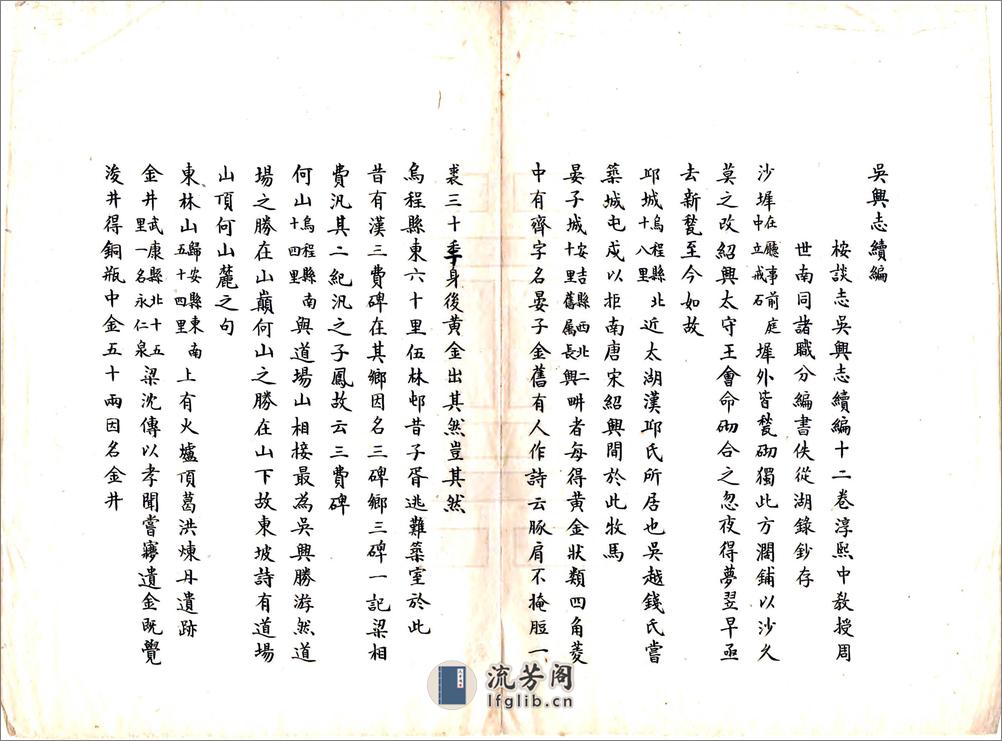 吳興志續編
桉談志吳興志續編十二卷淳熙中教授周
世南同諸職分編書佚從湖錄鈔存
沙墀在廳事前庭中立戒石墀外皆甃砌獨此方濶鋪以沙久
莫之改紹興太守王會命砌合之忽夜得夢翌早亟
去新甃至今如故
邱城烏程縣北十八里近太湖漢邱氏所居也吳越錢氏嘗
築城屯戍以拒南唐宋紹興間於此牧馬
晏子城安吉縣西北二十里舊属長興畊者每得黃金狀類四角菱
中有齊字名晏子金舊有人作詩云豚肩不掩脰一
裘三十季身後黃金出其然豈其然
烏程縣東六十里伍林邨昔子胥逃難築室於此
昔有漢三費碑在其鄉因名三碑鄉三碑一記梁相
費汎其二紀汎之子鳳故云三費碑
何山烏程縣南十四里與道場山相接最為吳興勝游然道
場之勝在山巔何山之勝在山下故東坡詩有道場
山頂何山麓之句
東林山歸安縣東南五十四里上有火爐頂葛洪煉丹遺跡
金井武康縣北十五里一名永仁泉梁沈傳以孝聞嘗寢遺金既覺
浚井得銅瓶中金五十兩因名金井
流芳阁
lfglib.cn